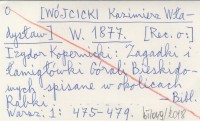 [WÓJCICKI Kazimierz Wła-
dysław] W. 1877. [Rec. o:]
Izydor Kopernicki: Zagadki i
łamigłówki Górali Bieskido-
wych spisane w okolicach
Rabki. — Bibl.
Warsz. 1: 475-479.